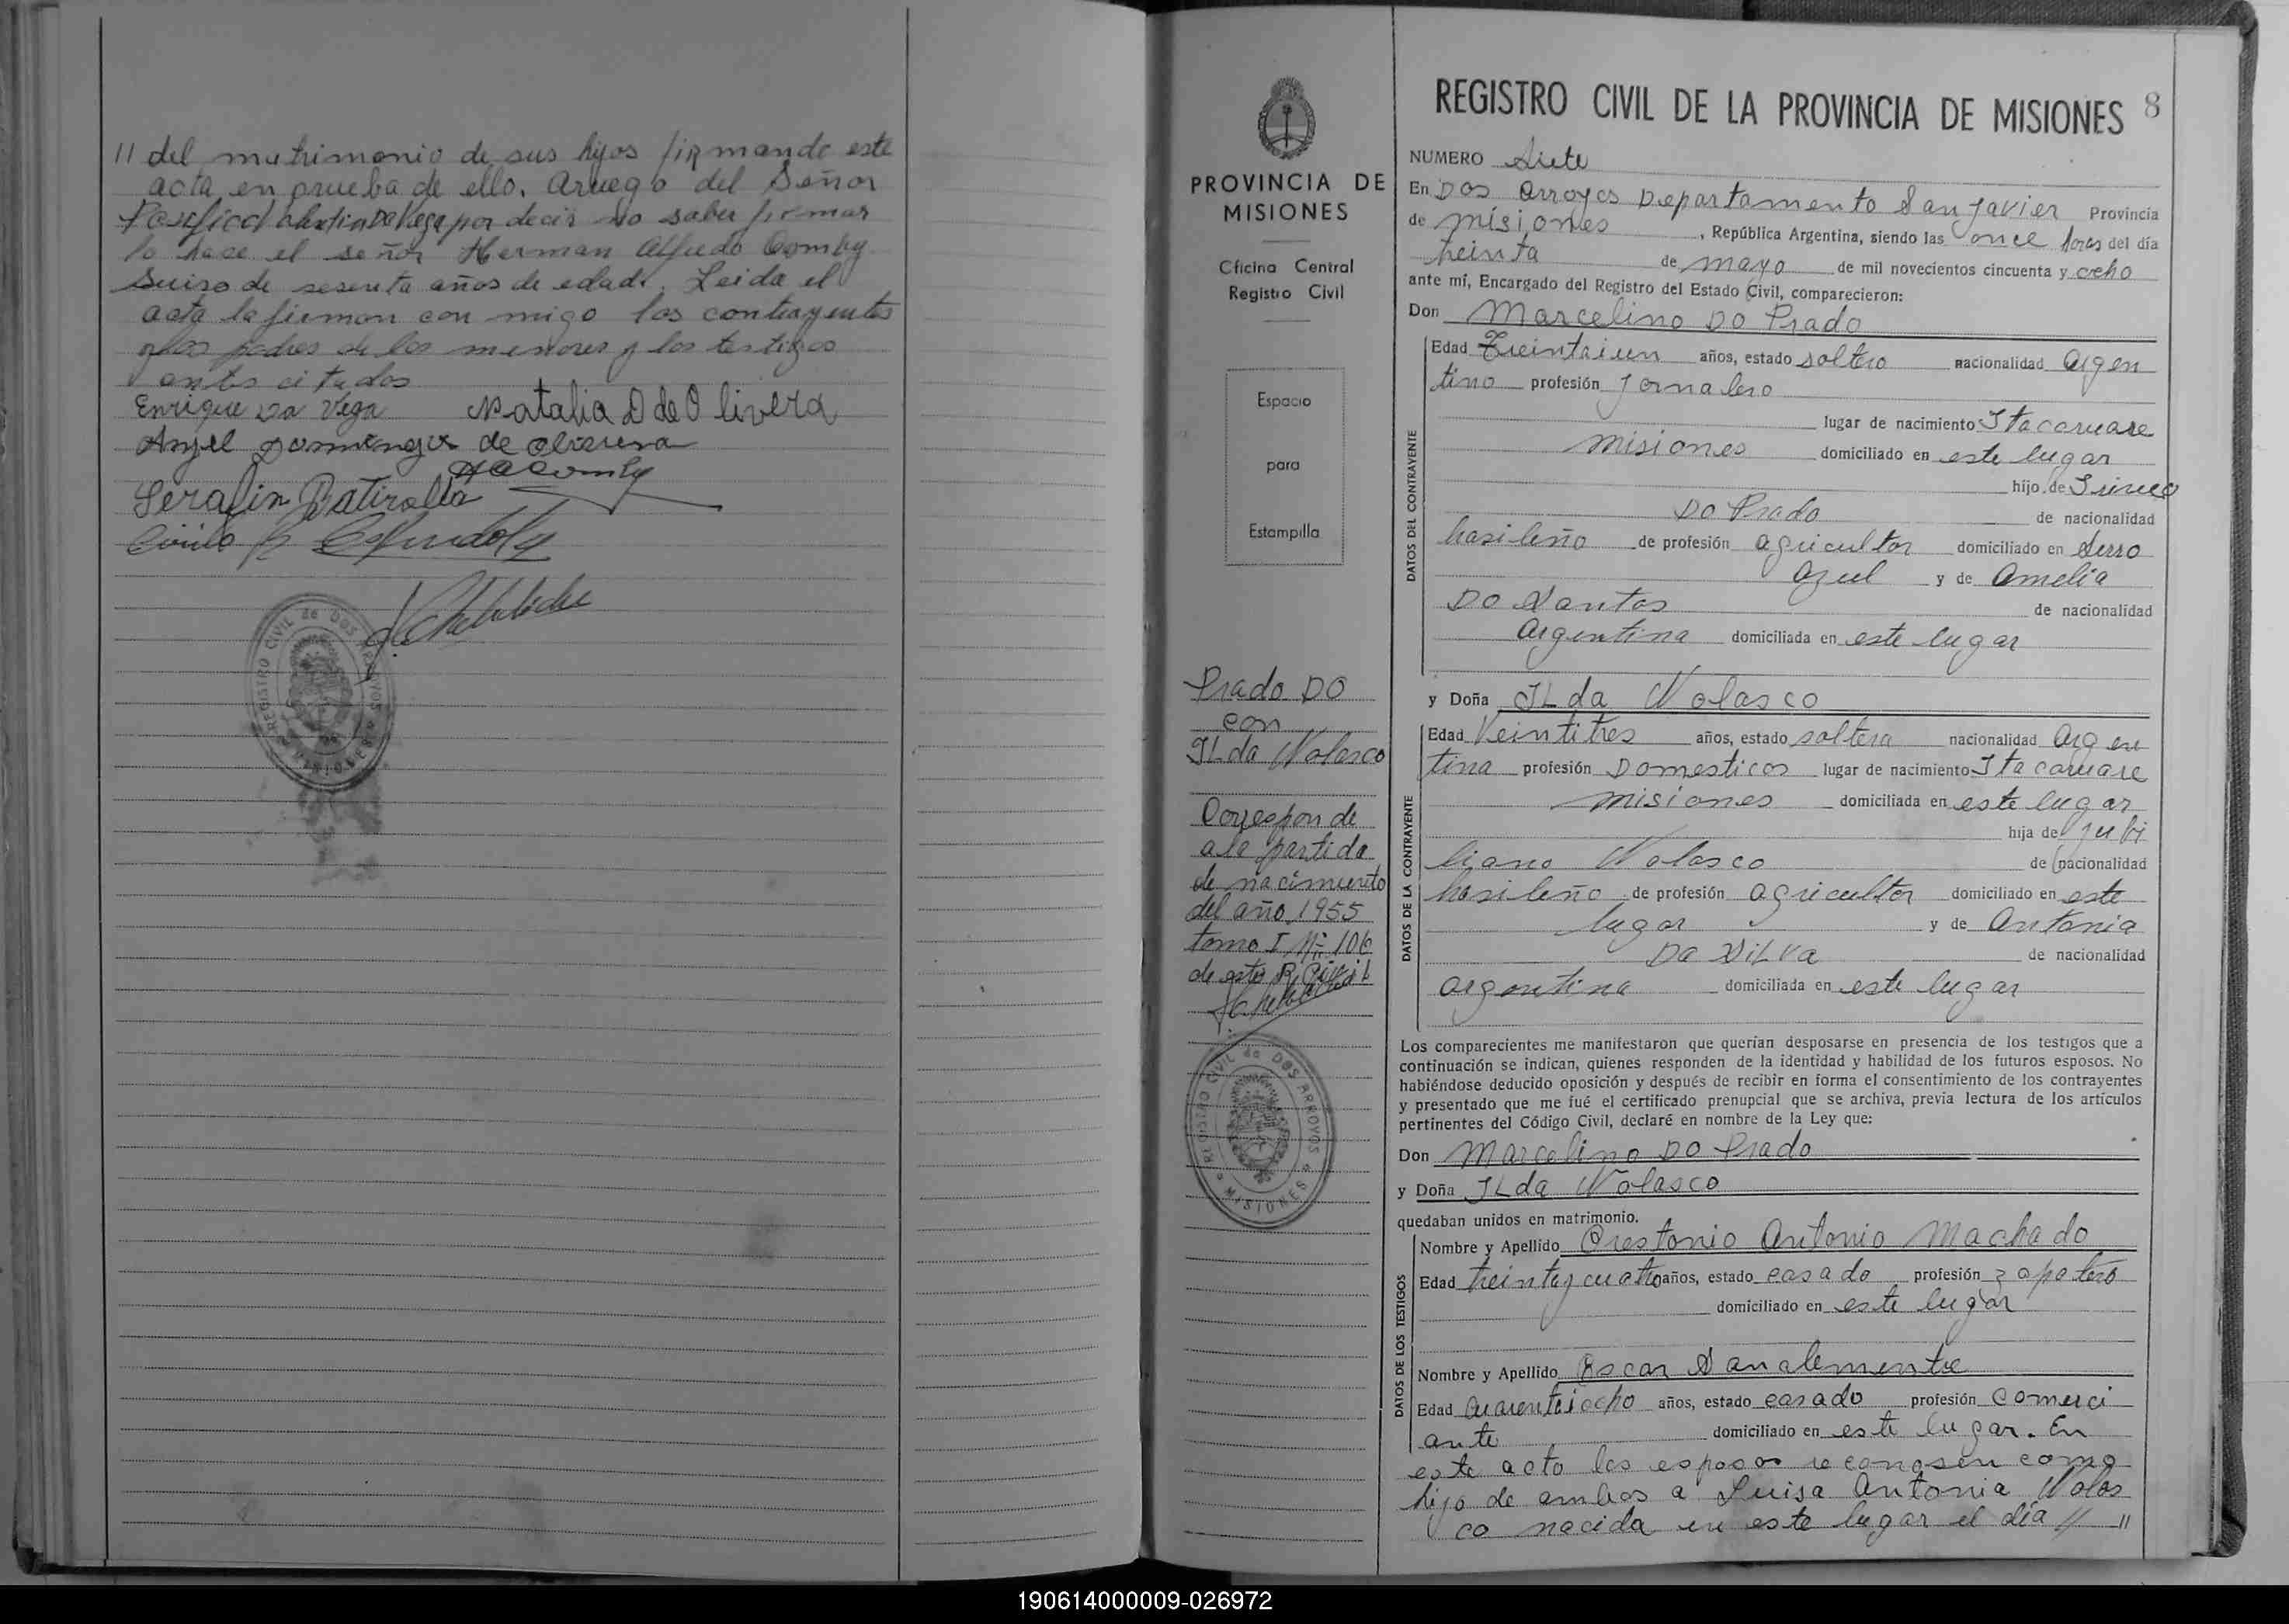 11 del matrimonio de sus hijos firmando este
acta en prueba de ello. Aruego del Señor
por decir no saber firmar
lo hace el señor Herman Alfredo Comby
Suiso de sesenta años de edad. Leida el
acta la firman con migo los contrayentes
y los padres de los menores y los testigos
antes citados
Enrique Da Vega Natalia D de Olivera
Anjel Dominguez de Olivera
HAComby
Serafin Batiralla
REGISTRO CIVIL de DOS ARROYOS
MISIONES
PROVINCIA DE
MISIONES
Oficina Central
Registro Civil
Espacio
para
Estampilla
Prado DO
con
ILda Nolasco
Correspon de
a la partida
de nacimiento
del año 1955
tomo I Nº 106
de este R. Civil
REGISTRO CIVIL de DOS ARROYOS
MISIONES
REGISTRO CIVIL DE LA PROVINCIA DE MISIONES 8
NUMERO Siete
En Dos Arroyos Departamento San Javier Provincia
de Misiones, República Argentina, siendo las once horas del día
treinta de mayo de mil novecientos cincuenta y ocho
ante mí, Encargado del Registro del Estado Civil, comparecieron:
Don Marcelino DO Prado
DATOS DEL CONTRAYENTE
Edad Treintaiun años, estado soltero nacionalidad Argen
tino profesión Jornalero
lugar de nacimiento Itacaruare
Misiones domiciliado en este lugar
hijo de Irineo
DO Prado de nacionalidad
brasileño de profesión agricultor domiciliado en Serro
Azul y de Amelia
DO Santos de nacionalidad
Argentina domiciliada en este lugar
y Doña ILda Nolasco
DATOS DE LA CONTRAYENTE
Edad Veintitres años, estado soltera nacionalidad Argen
tina profesión Domesticos lugar de nacimiento Itacaruare
Misiones domiciliada en este lugar
hija de Jubi
liano Nolasco de nacionalidad
brasileño de profesión agricultor domiciliado en este
lugar y de Antonia
Da SiLva de nacionalidad
argentina domiciliada en este lugar
Los comparecientes me manifestaron que querían desposarse en presencia de los testigos que a
continuación se indican, quienes responden de la identidad y habilidad de los futuros esposos. No
habiéndose deducido oposición y después de recibir en forma el consentimiento de los contrayentes
y presentado que me fué el certificado prenupcial que se archiva, previa lectura de los artículos
pertinentes del Código Civil, declaré en nombre de la Ley que:
Don Marcelino DO Prado
y Doña ILda Nolasco
quedaban unidos en matrimonio.
DATOS DE LOS TESTIGOS
Nombre y Apellido Crestonio Antonio Machado
Edad treintaycuatro años, estado casado profesión zapatero
domiciliado en este lugar
Nombre y Apellido Oscar Sanalemente
Edad Cuarentaiocho años, estado casado profesión comerci
ante domiciliado en este lugar. En
este acto los esposos reconosen como
hijo de ambos a Luisa Antonia Nolas
co nacida en este lugar el día // 11
190614000009-026972